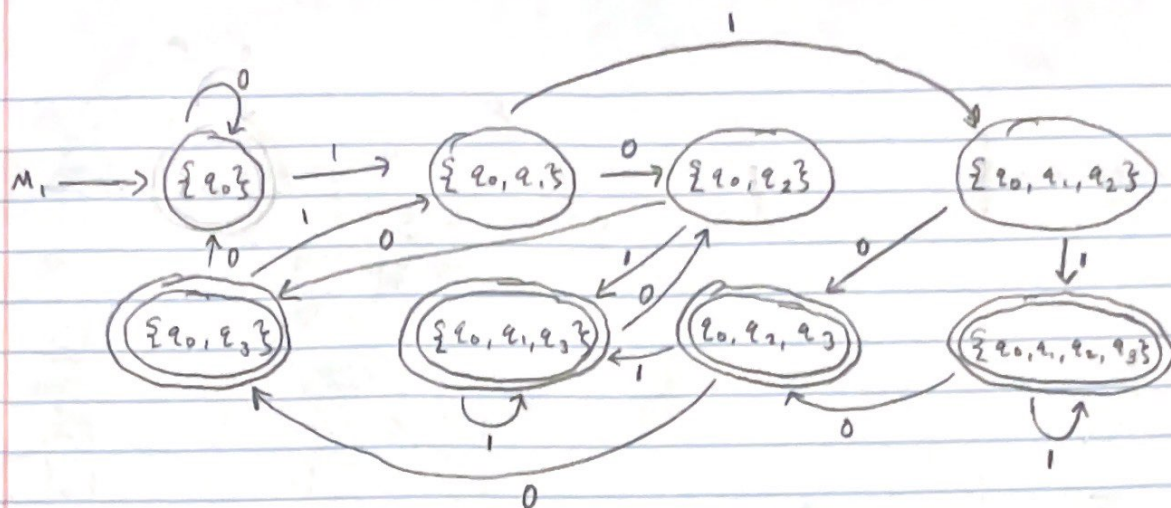 1
0
M₁ {q₀} 1 {q₀, q₁} 0 {q₀, q₂} {q₀, q₁, q₂}
0 1 0 1 0 0 1
{q₀, q₃} {q₀, q₁, q₃} 1 q₀, q₂, q₃ {q₀, q₁, q₂, q₃}
1 0 1
0